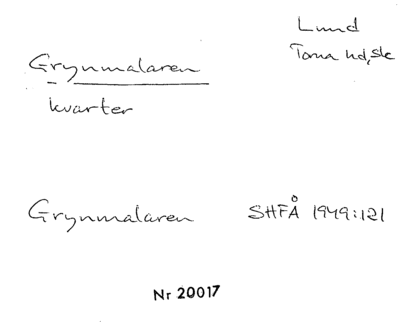 Lund
Torna hd, Sk
Grynmalaren
kvarter
Grynmalaren SHFÅ 1949:121
Nr 20017